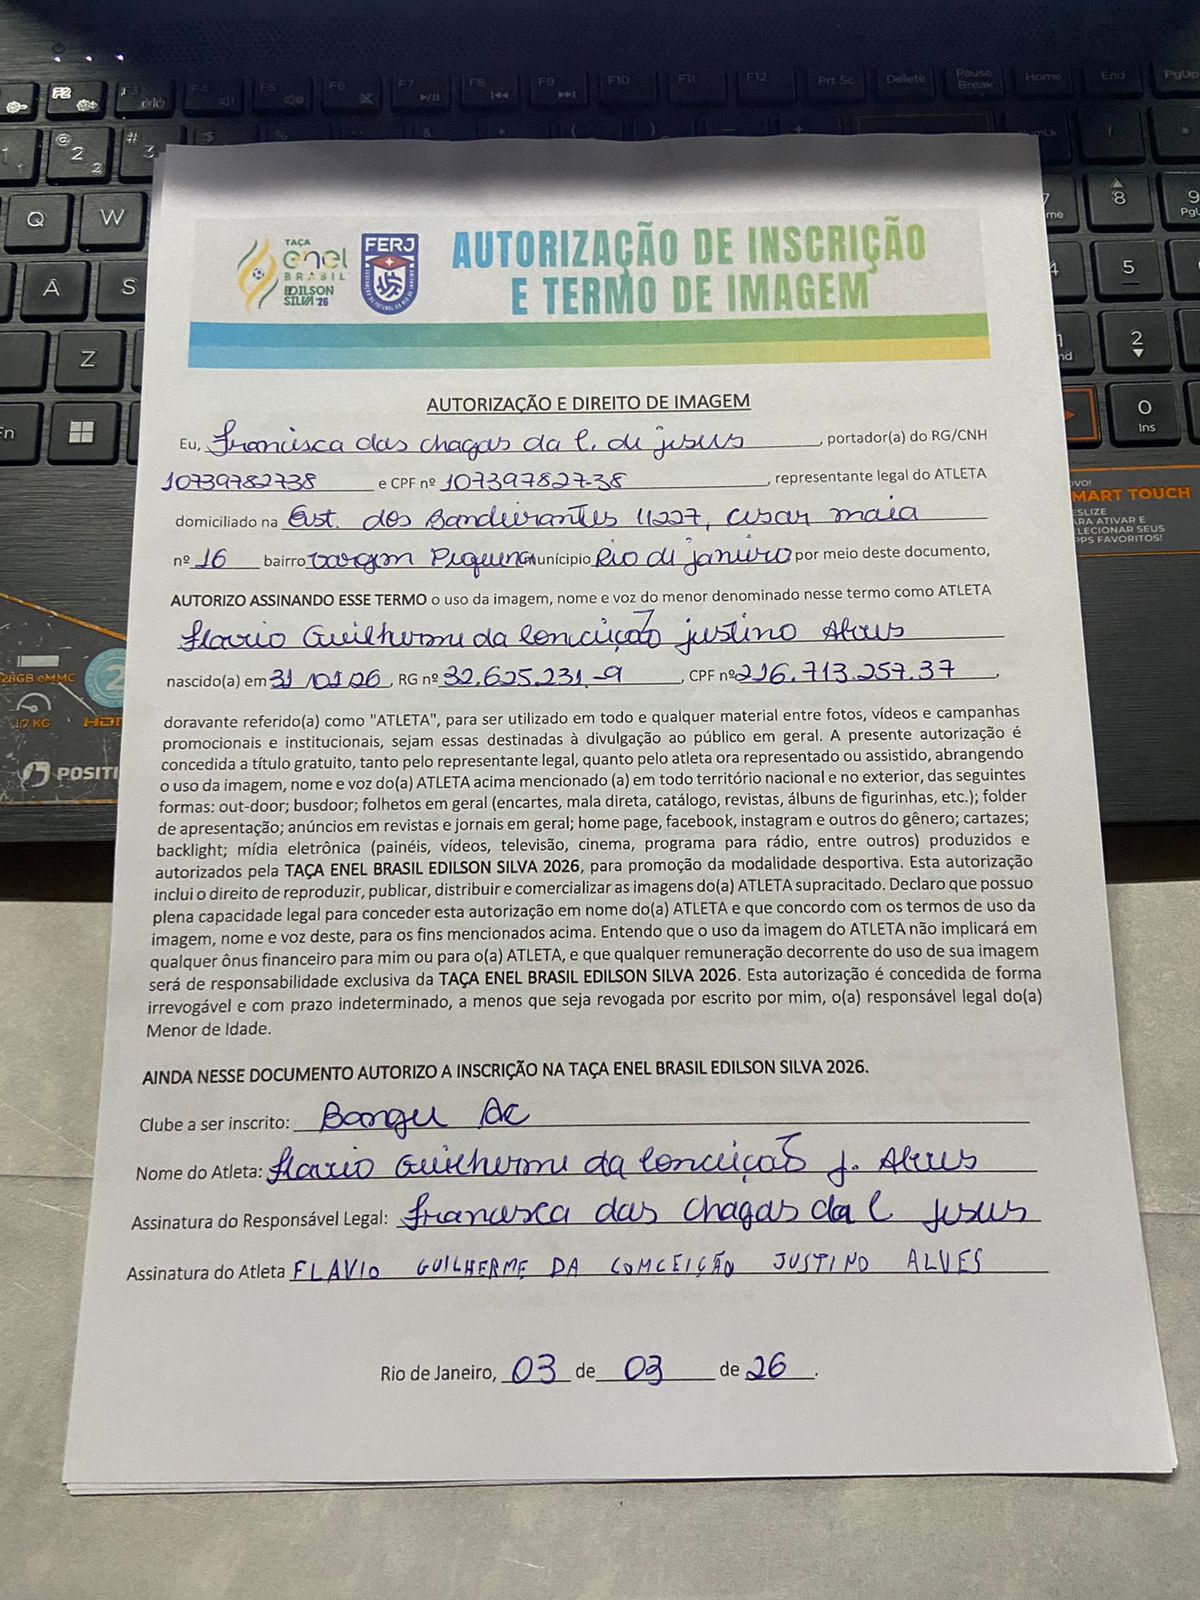 TAÇA
enel
BRASIL
EDILSON
SILVA '26
FERJ
AUTORIZAÇÃO DE INSCRIÇÃO
E TERMO DE IMAGEM
AUTORIZAÇÃO E DIREITO DE IMAGEM
Eu, Francisca das chagas da C. de jesus, portador(a) do RG/CNH
10739782738 e CPF nº 107397827-38, representante legal do ATLETA
domiciliado na Est. dos Bandeirantes 11227, cesar maia
nº 16 bairro Vargem Pequena município Rio de janeiro por meio deste documento,
AUTORIZO ASSINANDO ESSE TERMO o uso da imagem, nome e voz do menor denominado nesse termo como ATLETA
Flavio Guilherme da Conceição justino Alves
nascido(a) em 31/01/26, RG nº 32.625.231-9, CPF nº 216.713.257.37,
doravante referido(a) como "ATLETA", para ser utilizado em todo e qualquer material entre fotos, vídeos e campanhas
promocionais e institucionais, sejam essas destinadas à divulgação ao público em geral. A presente autorização é
concedida a título gratuito, tanto pelo representante legal, quanto pelo atleta ora representado ou assistido, abrangendo
o uso da imagem, nome e voz do(a) ATLETA acima mencionado (a) em todo território nacional e no exterior, das seguintes
formas: out-door; busdoor; folhetos em geral (encartes, mala direta, catálogo, revistas, álbuns de figurinhas, etc.); folder
de apresentação; anúncios em revistas e jornais em geral; home page, facebook, instagram e outros do gênero; cartazes;
backlight; mídia eletrônica (painéis, vídeos, televisão, cinema, programa para rádio, entre outros) produzidos e
autorizados pela TAÇA ENEL BRASIL EDILSON SILVA 2026, para promoção da modalidade desportiva. Esta autorização
inclui o direito de reproduzir, publicar, distribuir e comercializar as imagens do(a) ATLETA supracitado. Declaro que possuo
plena capacidade legal para conceder esta autorização em nome do(a) ATLETA e que concordo com os termos de uso da
imagem, nome e voz deste, para os fins mencionados acima. Entendo que o uso da imagem do ATLETA não implicará em
qualquer ônus financeiro para mim ou para o(a) ATLETA, e que qualquer remuneração decorrente do uso de sua imagem
será de responsabilidade exclusiva da TAÇA ENEL BRASIL EDILSON SILVA 2026. Esta autorização é concedida de forma
irrevogável e com prazo indeterminado, a menos que seja revogada por escrito por mim, o(a) responsável legal do(a)
Menor de Idade.
AINDA NESSE DOCUMENTO AUTORIZO A INSCRIÇÃO NA TAÇA ENEL BRASIL EDILSON SILVA 2026.
Clube a ser inscrito: Bangu AC
Nome do Atleta: Flavio Guilherme da Conceição J. Alves
Assinatura do Responsável Legal: Francisca das Chagas da C Jesus
Assinatura do Atleta FLAVIO GUILHERME DA COMCEIÇÃO JUSTINO ALVES
Rio de Janeiro, 03 de 03 de 26.